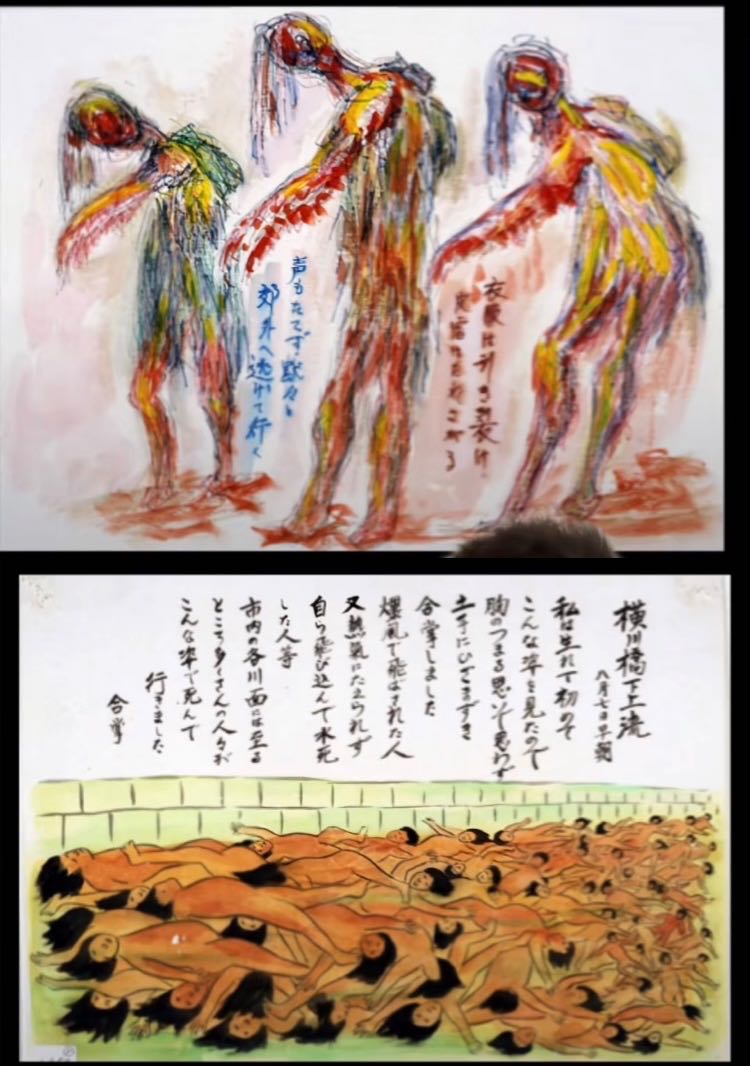 衣服は引き裂け
皮膚は垂れさがる
声もたてず黙々と
郊外へ逃げて行く
横川橋下上流
八月七日早朝
私は生れて初めて
こんな姿を見たので
胸のつまる思いで思わず
土手にひざまずき
合掌しました
爆風で飛ばされた人
又熱気にたえられず
自ら飛び込んで水死
した人等
市内の各川面には至る
ところ多くさんの人々が
こんな姿で死んで
行きました
合掌